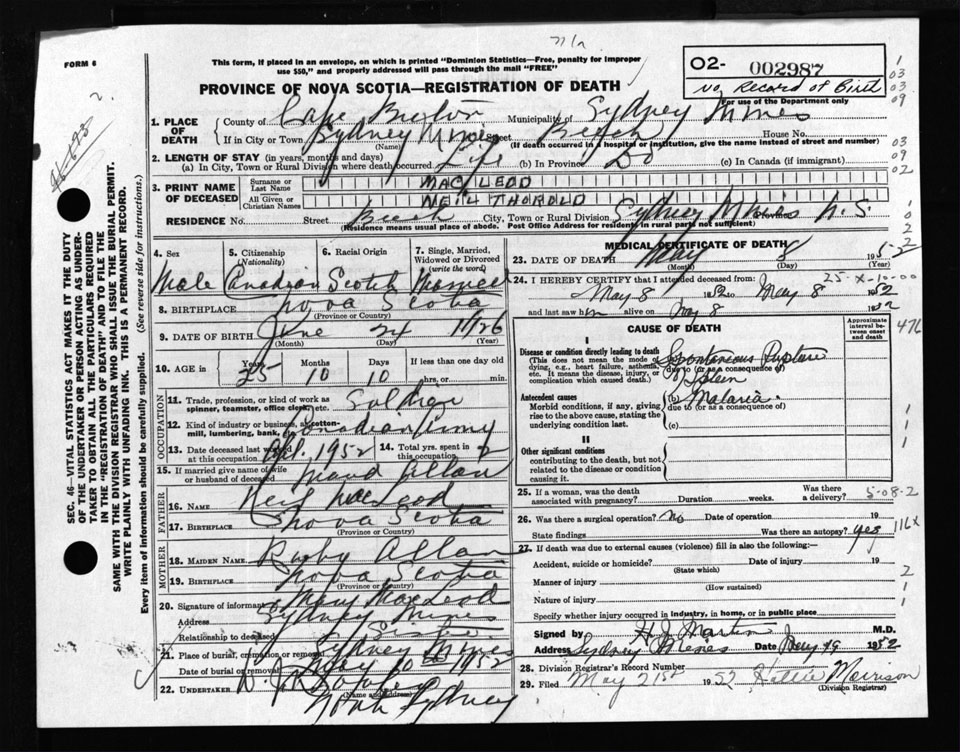 FORM 6
This form, if placed in an envelope, on which is printed "Dominion Statistics—Free, penalty for improper
use $50," and properly addressed will pass through the mail "FREE"
PROVINCE OF NOVA SCOTIA—REGISTRATION OF DEATH
02- 002987
No Record of Birth
For use of the Department only
1. PLACE OF DEATH
County of Cape Breton Municipality of Sydney Mines
If in City or Town Sydney Mines Street Beech House No.
(Name) (If death occurred in a hospital or institution, give the name instead of street and number)
2. LENGTH OF STAY (in years, months and days)
(a) In City, Town or Rural Division where death occurred Life (b) In Province Do (c) In Canada (if immigrant)
3. PRINT NAME OF DECEASED
Surname or Last Name MACLEOD
All Given or Christian Names NEIL THOROLD
RESIDENCE No. Street Beech City, Town or Rural Division Sydney Mines N.S.
(Residence means usual place of abode. Post Office Address for residents in rural parts not sufficient)
4. Sex Male
5. Citizenship (Nationality) Canadian
6. Racial Origin Scotch
7. Single, Married, Widowed or Divorced (write the word) Married
8. BIRTHPLACE Nova Scotia
(Province or Country)
9. DATE OF BIRTH June 24 1926
(Month) (Day) (Year)
10. AGE in Years 25 Months 10 Days 10 If less than one day old hrs. or min.
OCCUPATION
11. Trade, profession, or kind of work as spinner, teamster, office clerk, etc. Soldier
12. Kind of industry or business, as cotton-mill, lumbering, bank, etc. Canadian Army
13. Date deceased last worked at this occupation Apl. 1952
14. Total yrs. spent in this occupation 2
15. If married give name of wife or husband of deceased Maud Allan
FATHER
16. NAME Neil MacLeod
17. BIRTHPLACE Nova Scotia
MOTHER
18. MAIDEN NAME Ruby Allan
19. BIRTHPLACE Nova Scotia
(Province or Country)
20. Signature of informant Mary MacLeod
Address Sydney Mines
Relationship to deceased Sister
21. Place of burial, cremation or removal Sydney Mines
Date of burial or removal May 10th 1952
22. UNDERTAKER
(Name and Address)
North Sydney
MEDICAL CERTIFICATE OF DEATH
23. DATE OF DEATH May 8 1952
(Month) (Day) (Year)
24. I HEREBY CERTIFY that I attended deceased from:
May 8 1952 to May 8 1952
and last saw him alive on May 8 1952
CAUSE OF DEATH
Approximate interval between onset and death
I
Disease or condition directly leading to death
(This does not mean the mode of dying, e.g., heart failure, asthenia, etc. It means the disease, injury, or complication which caused death.)
(a) Spontaneous Rupture
due to (or as a consequence of)
of Spleen
Antecedent causes
Morbid conditions, if any, giving rise to the above cause, stating the underlying condition last.
(b) Malaria
due to (or as a consequence of)
(c)
II
Other significant conditions
contributing to the death, but not related to the disease or condition causing it.
25. If a woman, was the death associated with pregnancy? Duration weeks. Was there a delivery?
5-08-2
26. Was there a surgical operation? No Date of operation 19
State findings Was there an autopsy? Yes
27. If death was due to external causes (violence) fill in also the following:—
Accident, suicide or homicide? Date of injury 19
(State which)
Manner of injury
(How sustained)
Nature of injury
Specify whether injury occurred in industry, in home, or in public place
Signed by H J Martin M.D.
Address Sydney Mines Date May 1952
28. Division Registrar's Record Number
29. Filed May 21st 1952 Hattie Morrison
(Division Registrar)
SEC. 46—VITAL STATISTICS ACT MAKES IT THE DUTY
OF THE UNDERTAKER OR PERSON ACTING AS UNDER-
TAKER TO OBTAIN ALL THE PARTICULARS REQUIRED
IN THE "REGISTRATION OF DEATH" AND TO FILE THE
SAME WITH THE DIVISION REGISTRAR WHO SHALL ISSUE THE BURIAL PERMIT.
WRITE PLAINLY WITH UNFADING INK. THIS IS A PERMANENT RECORD.
Every item of information should be carefully supplied. (See reverse side for instructions.)